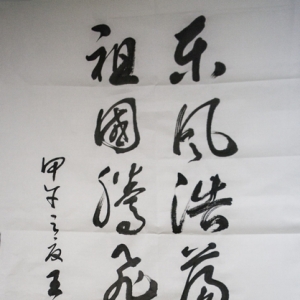 东风浩荡
祖國騰飛
甲午之夏王